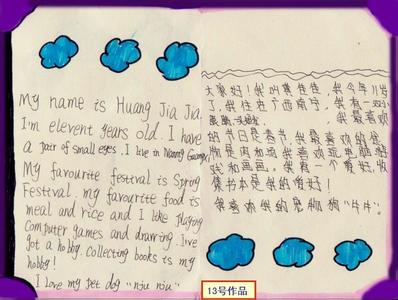 My name is Huang Jia Jia,
I'm elevent years old. I have
a pair of small eyes. I live in Nanning Guangxi
My favourite festival is Spring
Festival. my favourite food is
meal and rice and I like playing
computer games and drawing. I've
got a hobby. Collecting books is my
hobby!
I love my pet dog "niu niu"
大家好！我叫黄佳佳，我今年11岁
了，我住在广西南宁，我有一双小
我最喜欢
的节日是春节，我最喜欢的食
物是肉和饭，我喜欢玩电脑游
戏和画画。我有一个爱好，收
集书本是我的爱好！
我喜欢我的宠物狗"牛牛"。
13号作品